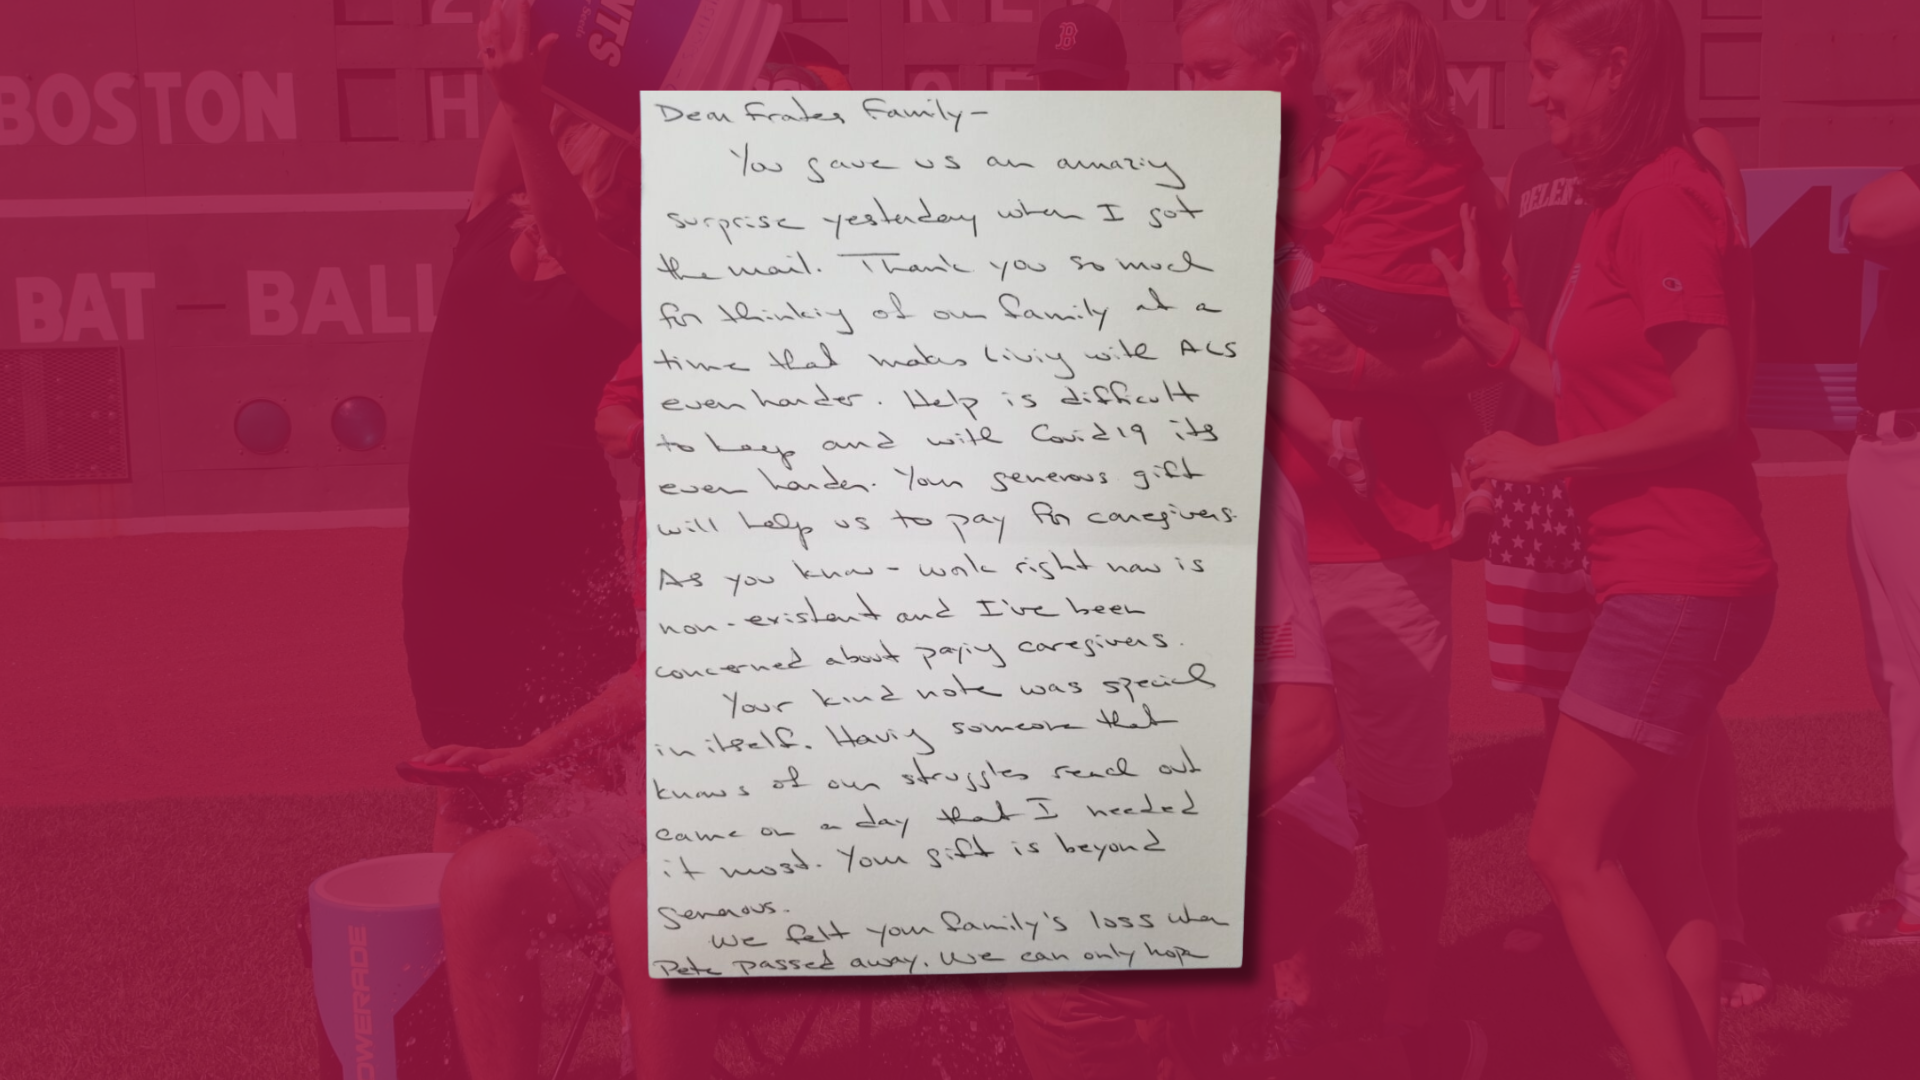 BOSTON H
BAT - BALL
NTS
B
M
POWERADE
Dear Frates Family-
You gave us an amazing
surprise yesterday when I got
the mail. Thank you so much
for thinking of our family at a
time that makes living with ALS
even harder. Help is difficult
to keep and with Covid19 its
even harder. Your generous gift
will help us to pay for caregivers.
As you know - work right now is
non-existent and I've been
concerned about paying caregivers.
Your kind note was special
in itself. Having someone that
knows of our struggles reach out
came on a day that I needed
it most. Your gift is beyond
generous.
We felt your family's loss when
Pete passed away. We can only hope